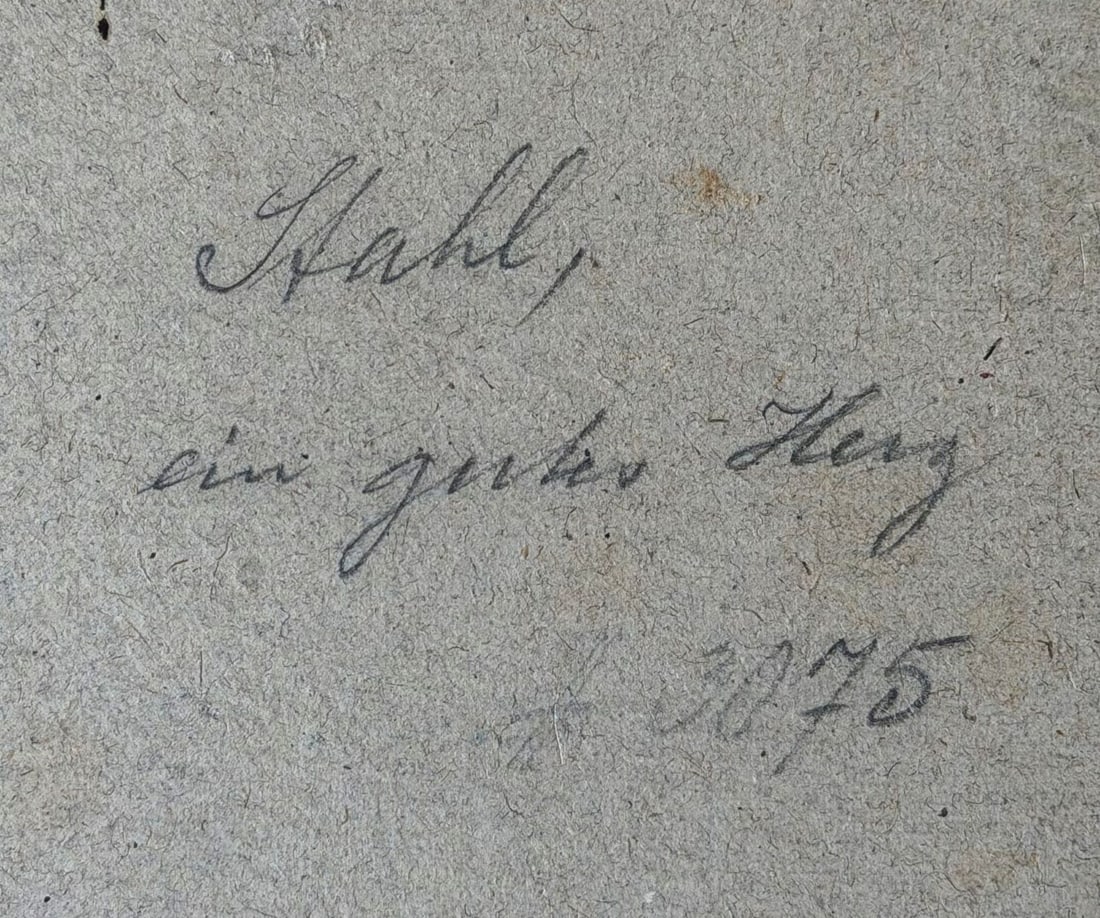 Stahl,
ein gutes Herz
3075